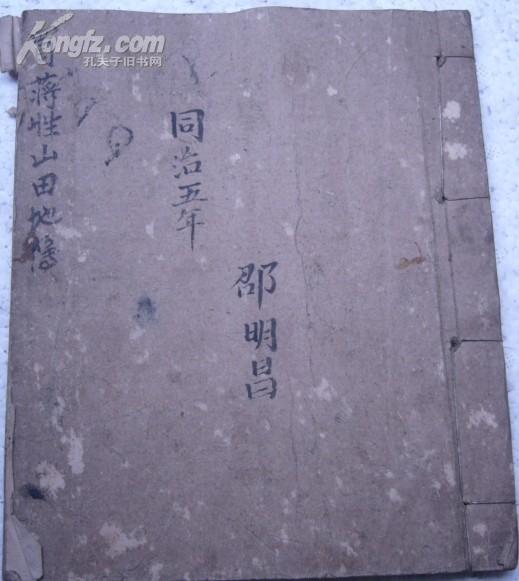 Kongfz.com
孔夫子旧书网
邵明昌
同治五年
蒋姓山田地